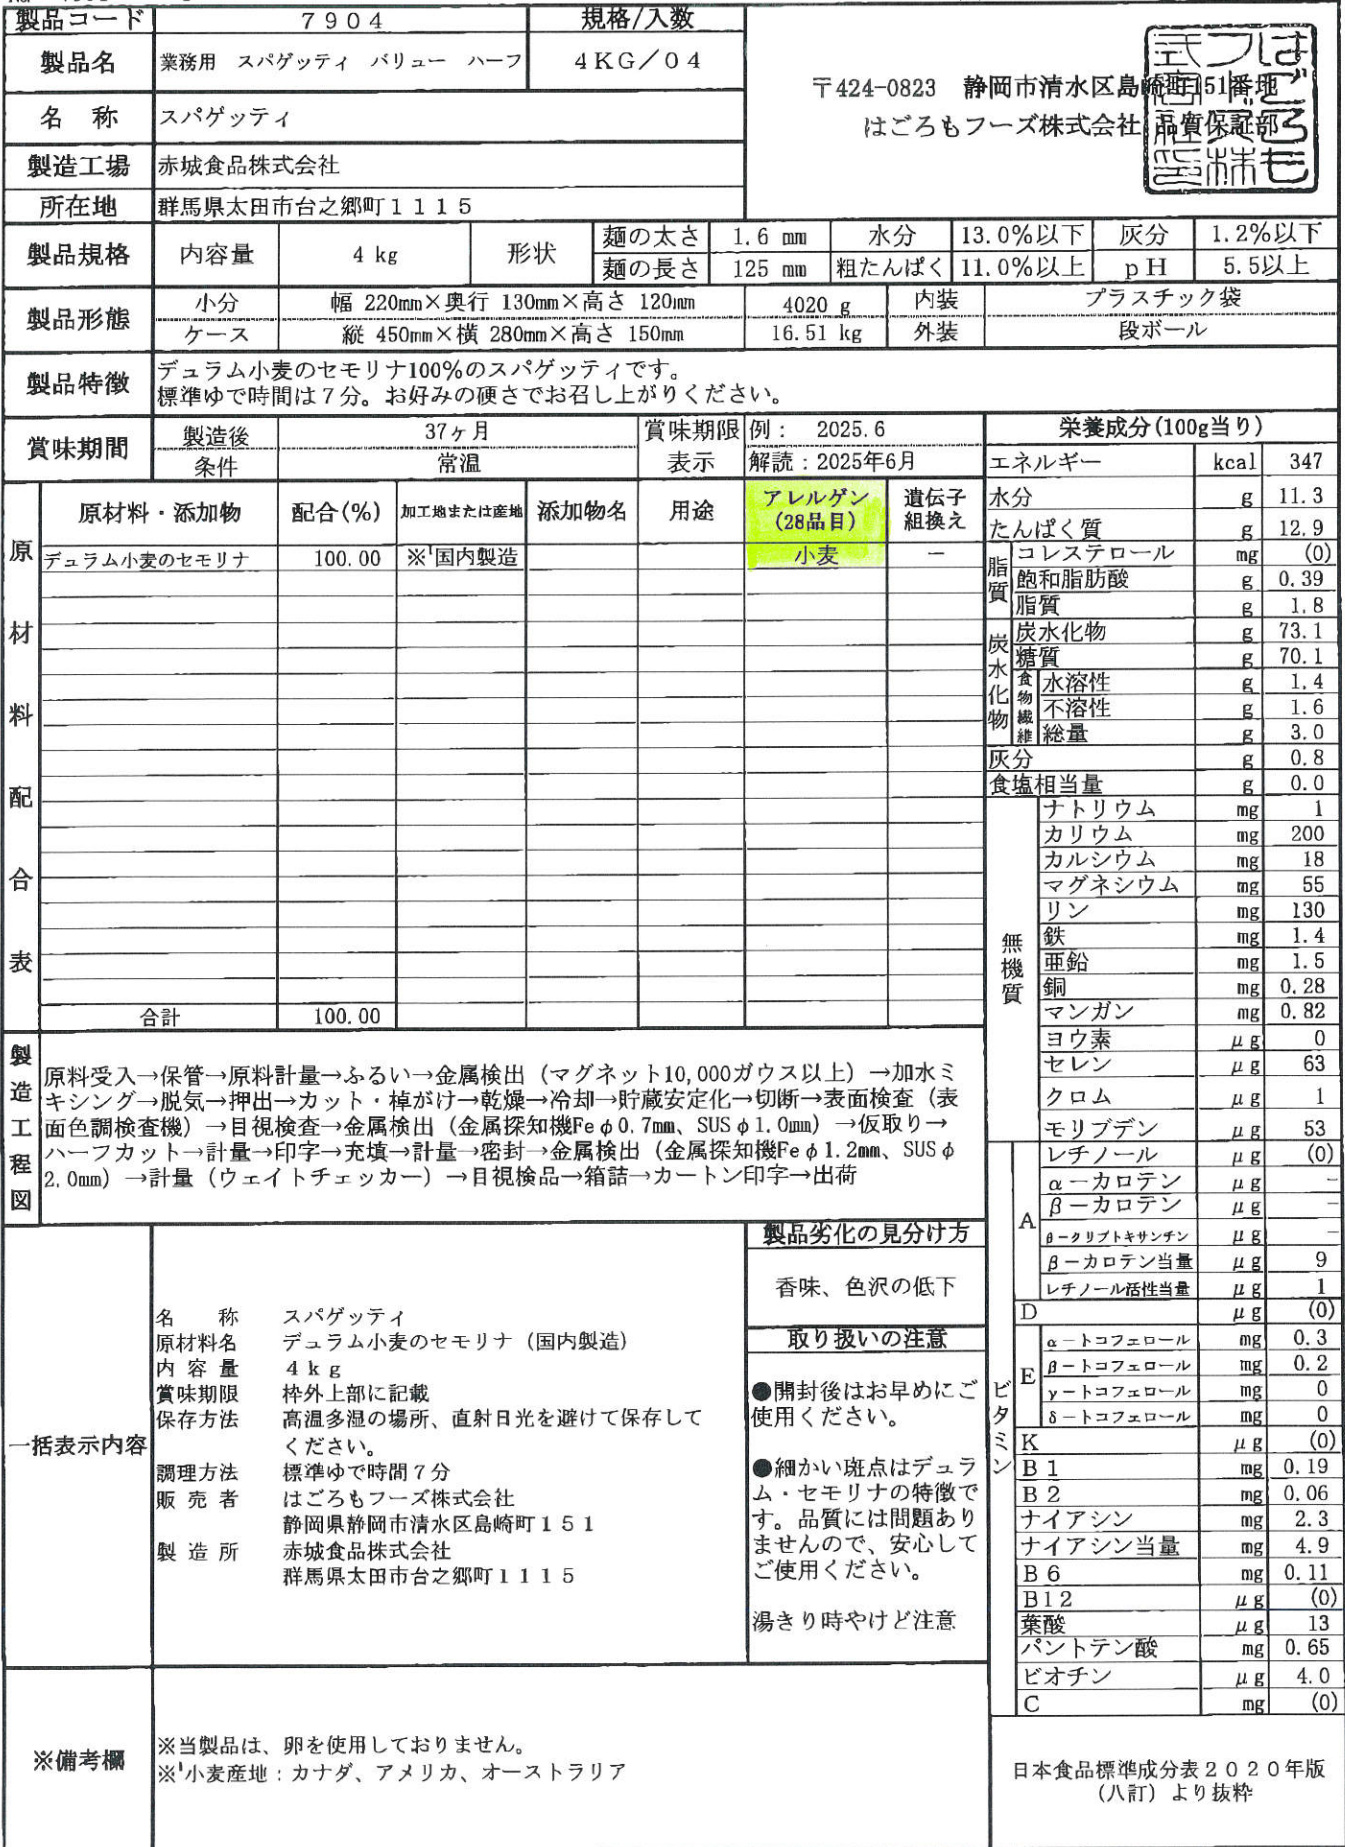 製品コード ７９０４ 規格/入数
製品名 業務用　スパゲッティ　バリュー　ハーフ ４ＫＧ／０４
〒424-0823　静岡市清水区島崎町151番地
はごろもフーズ株式会社 品質保証部
名　称 スパゲッティ
製造工場 赤城食品株式会社
所在地 群馬県太田市台之郷町１１１５
製品規格 内容量 4 kg 形状 麺の太さ 1.6 mm 水分 13.0%以下 灰分 1.2%以下
麺の長さ 125 mm 粗たんぱく 11.0%以上 ｐＨ 5.5以上
製品形態 小分 幅 220mm×奥行 130mm×高さ 120mm 4020 g 内装 プラスチック袋
ケース 縦 450mm×横 280mm×高さ 150mm 16.51 kg 外装 段ボール
製品特徴 デュラム小麦のセモリナ100%のスパゲッティです。
標準ゆで時間は７分。お好みの硬さでお召し上がりください。
賞味期間 製造後 37ヶ月 賞味期限 例：　2025.6
条件 常温 表示 解読：2025年6月
原材料配合表
原材料・添加物 配合(%) 加工地または産地 添加物名 用途 アレルゲン(28品目) 遺伝子組換え
デュラム小麦のセモリナ 100.00 ※¹国内製造 小麦 －
合計 100.00
製造工程図
原料受入→保管→原料計量→ふるい→金属検出（マグネット10,000ガウス以上）→加水ミ
キシング→脱気→押出→カット・棹がけ→乾燥→冷却→貯蔵安定化→切断→表面検査（表
面色調検査機）→目視検査→金属検出（金属探知機Feφ0.7mm、SUSφ1.0mm）→仮取り→
ハーフカット→計量→印字→充填→計量→密封→金属検出（金属探知機Feφ1.2mm、SUSφ
2.0mm）→計量（ウェイトチェッカー）→目視検品→箱詰→カートン印字→出荷
一括表示内容
名　称 スパゲッティ
原材料名 デュラム小麦のセモリナ（国内製造）
内容量 ４ｋｇ
賞味期限 枠外上部に記載
保存方法 高温多湿の場所、直射日光を避けて保存して
ください。
調理方法 標準ゆで時間７分
販売者 はごろもフーズ株式会社
静岡県静岡市清水区島崎町１５１
製造所 赤城食品株式会社
群馬県太田市台之郷町１１１５
製品劣化の見分け方
香味、色沢の低下
取り扱いの注意
●開封後はお早めにご
使用ください。
●細かい斑点はデュラ
ム・セモリナの特徴で
す。品質には問題あり
ませんので、安心して
ご使用ください。
湯きり時やけど注意
※備考欄
※当製品は、卵を使用しておりません。
※¹小麦産地：カナダ、アメリカ、オーストラリア
栄養成分(100g当り)
エネルギー kcal 347
水分 g 11.3
たんぱく質 g 12.9
脂質
コレステロール mg (0)
飽和脂肪酸 g 0.39
脂質 g 1.8
炭水化物
炭水化物 g 73.1
糖質 g 70.1
食物繊維
水溶性 g 1.4
不溶性 g 1.6
総量 g 3.0
灰分 g 0.8
食塩相当量 g 0.0
無機質
ナトリウム mg 1
カリウム mg 200
カルシウム mg 18
マグネシウム mg 55
リン mg 130
鉄 mg 1.4
亜鉛 mg 1.5
銅 mg 0.28
マンガン mg 0.82
ヨウ素 μg 0
セレン μg 63
クロム μg 1
モリブデン μg 53
ビタミン
A
レチノール μg (0)
α－カロテン μg -
β－カロテン μg -
β－クリプトキサンチン μg -
β－カロテン当量 μg 9
レチノール活性当量 μg 1
D μg (0)
E
α－トコフェロール mg 0.3
β－トコフェロール mg 0.2
γ－トコフェロール mg 0
δ－トコフェロール mg 0
K μg (0)
B１ mg 0.19
B２ mg 0.06
ナイアシン mg 2.3
ナイアシン当量 mg 4.9
B６ mg 0.11
B12 μg (0)
葉酸 μg 13
パントテン酸 mg 0.65
ビオチン μg 4.0
C mg (0)
日本食品標準成分表２０２０年版
（八訂）より抜粋